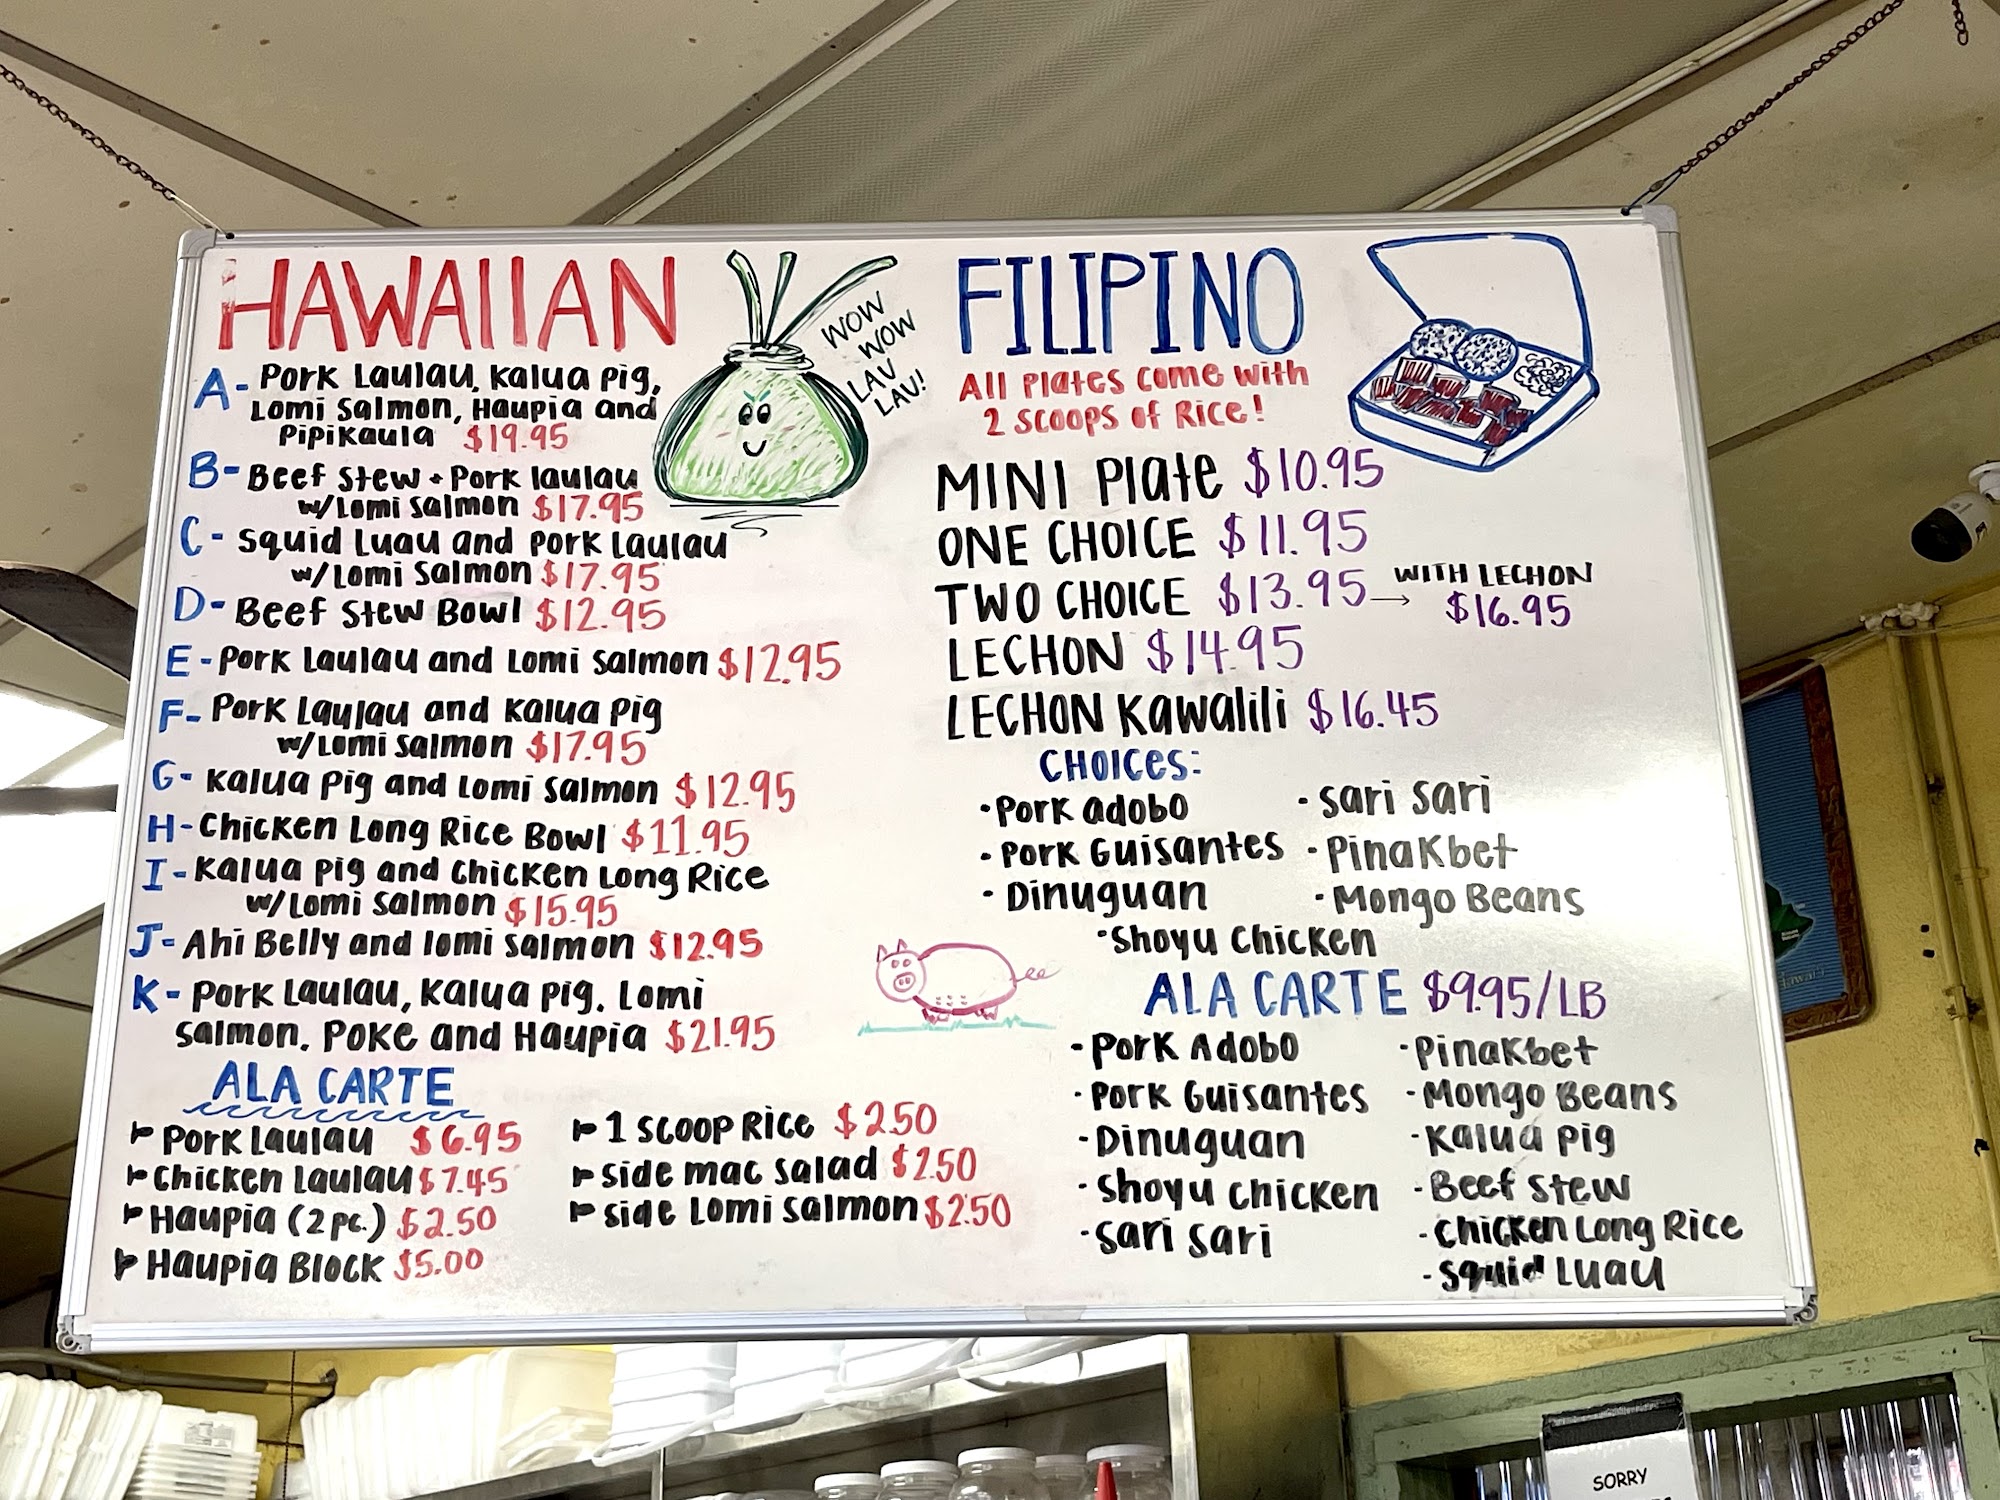 HAWAIIAN
A- Pork Laulau, Kalua Pig,
Lomi Salmon, Haupia and
Pipikaula $19.95
B- Beef Stew + Pork laulau
w/Lomi Salmon $17.95
C- Squid Luau and Pork Laulau
w/Lomi Salmon $17.95
D- Beef Stew Bowl $12.95
E- Pork Laulau and Lomi Salmon $12.95
F- Pork Laulau and Kalua Pig
w/Lomi Salmon $17.95
G- Kalua Pig and Lomi Salmon $12.95
H- Chicken Long Rice Bowl $11.95
I- Kalua Pig and Chicken Long Rice
w/Lomi Salmon $15.95
J- Ahi Belly and lomi Salmon $12.95
K- Pork Laulau, Kalua Pig, Lomi
Salmon, Poke and Haupia $21.95
ALA CARTE
Pork Laulau $6.95
Chicken Laulau $7.45
Haupia (2pc.) $2.50
Haupia Block $5.00
1 SCOOP Rice $2.50
side mac salad $2.50
side Lomi Salmon $2.50
WOW
WOW
LAV
LAV!
FILIPINO
All Plates come with
2 scoops of Rice!
MINI Plate $10.95
ONE CHOICE $11.95
TWO CHOICE $13.95 → WITH LECHON
$16.95
LECHON $14.95
LECHON Kawalili $16.45
CHOICES:
·Pork Adobo
·Pork Guisantes
·Dinuguan
·Sari Sari
·Pinakbet
·Mongo Beans
·Shoyu Chicken
ALA CARTE $9.95/LB
·Pork Adobo
·Pork Guisantes
·Dinuguan
·Shoyu Chicken
·Sari Sari
·Pinakbet
·Mongo Beans
·Kalua Pig
·Beef Stew
·Chicken Long Rice
·Squid Luau
SORRY